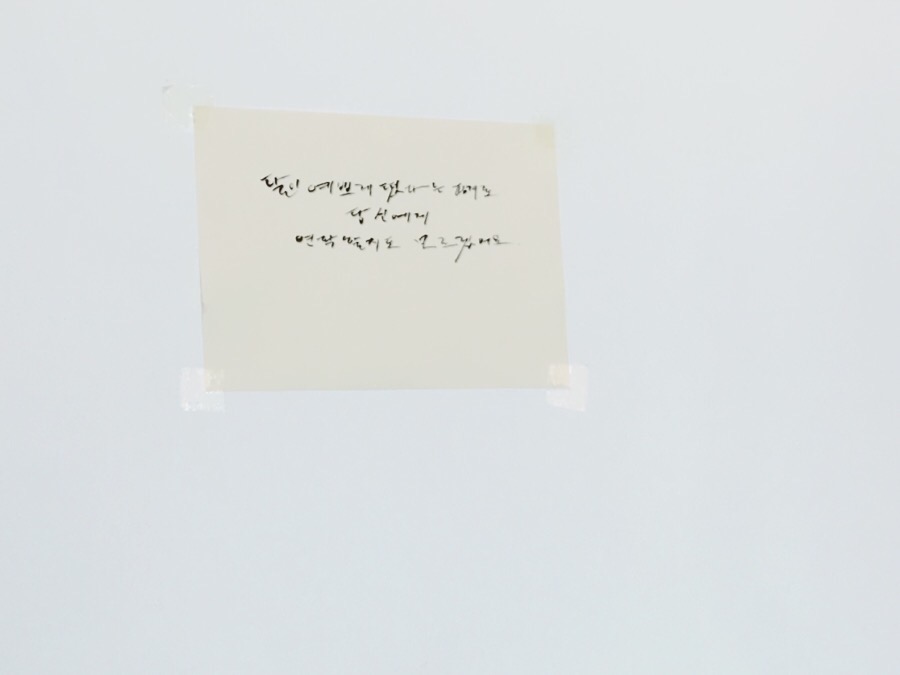 달이 예쁘게 떴다는 핑계로
당신에게
연락할지도 모르겠어요.